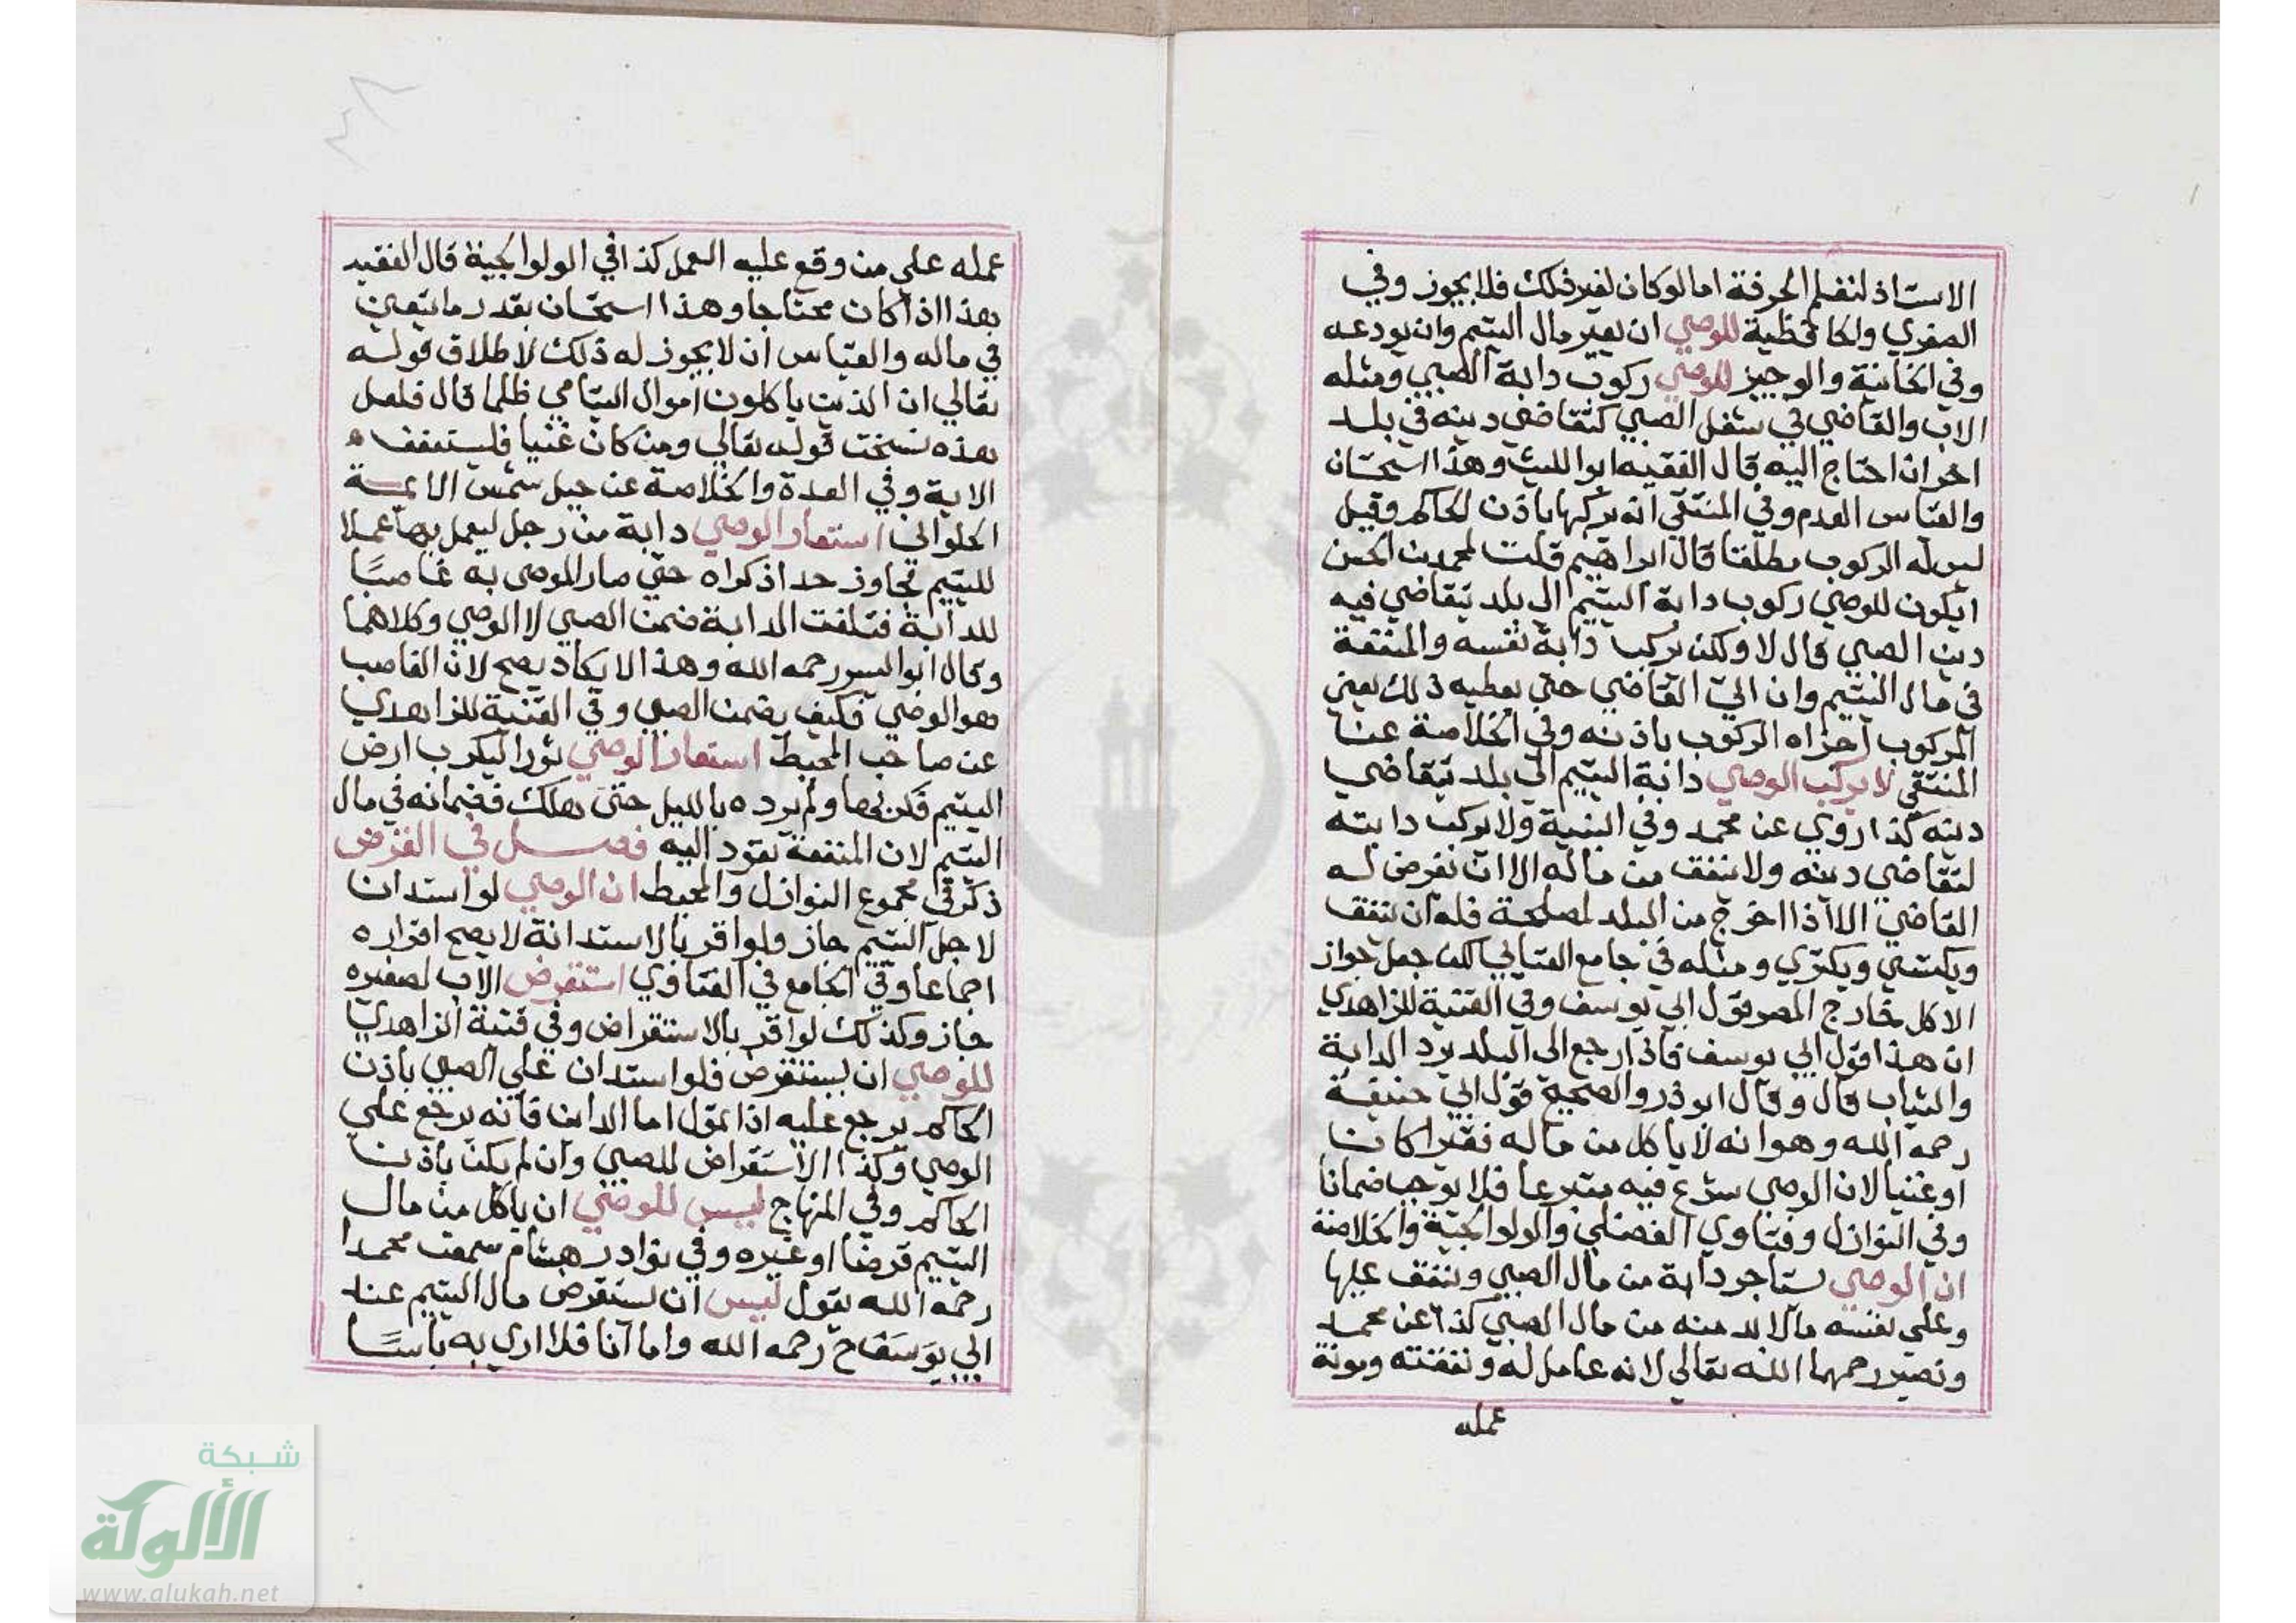 الاستاذ لتعلم الحرفة اما لو كان لغير ذلك فلا يجوز وفي
الصغري والكافي ظية للوصي ان يعير مال اليتيم وان يودعه
وفي الخانية والوجيز للوصي ركوب دابة الصبي ومثله
الاب والقاضي في شغل الصبي كتقاضي دينه في بلد
اخر ان احتاج اليه قال الفقيه ابوا الليث وهذا استحسان
والقياس العدم وفي المنتقي انه يركبها باذن الحاكم وقيل
ليس له الركوب مطلقا قال ابراهيم قلت لمحمد بن الحسن
ايكون للوصي ركوب دابة اليتيم الي بلد يتقاضي فيه
دين الصبي قال لا ولكن يركب دابة نفسه والمنفعة
في مال اليتيم وان اتي القاضي حتي يعطيه ذلك يعني
المركوب اجزاه الركوب باذنه وفي الخلاصة عن
المنتقي لا يركب الوصي دابة اليتيم الي بلد يتقاضي
دينه كذا روي عن محمد وفي البنية ولا يركب دابته
لتقاضي دينه ولا ينفق من ماله الا ان يفرض له
القاضي الا اذا اخرج من البلد لمصلحة فله ان ينفق
ويكتسي ويكتري ومثله في جامع العتابي لكن جعل جواز
الاكل خارج المصر قول ابي يوسف وفي القنية للزاهدي
ان هذا قول ابي يوسف فاذا رجع الي البلد يرد الدابة
والثياب قال وقال ابو ذر والصحيح قول ابي حنيفة
رحمه الله وهو انه لا ياكل من ماله فقيرا كان
او غنيا لان الوصي شرع فيه متبرعا فلا يوجب ضمانا
وفي النوازل وفتاوي الفضلي والولوالجية والخلاصة
ان الوصي يستاجر دابة من مال الصبي وينفق عليها
وعلي نفسه ما لا بد منه من مال الصبي كذا عن محمد
ونصير رحمهما الله تعالي لانه عامل له ونفقته ومونة
عمله
عمله علي من وقع عليه العمل كذا في الولوالجية قال الفقيه
هذا اذا كان محتاجا وهذا استحسان بقدر ما يتعين
في ماله والقياس ان لا يجوز له ذلك لاطلاق قوله
تعالي ان الذين ياكلون اموال اليتامي ظلما قال فلعل
هذه نسخت قوله تعالي ومن كان غنيا فليستعفف
الاية وفي العدة والخلاصة عن حيل شمس الائمة
الحلواني استعار الوصي دابة من رجل ليعمل بها عملا
لليتيم تجاوز حد اذكراه حتي صار الموصي به غاصبًا
للدابة فتلفت الدابة ضمن الصبي لا الوصي وكلاهما
وقال ابو اليسر رحمه الله وهذا لا يكاد يصح لان الغاصب
هو الوصي فكيف يضمن الصبي وفي القنية للزاهدي
عن صاحب المحيط استعار الوصي ثورا ليكرب ارض
اليتيم فكربها ولم يرده بالليل حتي هلك فضمانه في مال
اليتيم لان المنفعة تعود اليه فصل في القرض
ذكر في مجموع النوازل والمحيط ان الوصي لو استدان
لاجل اليتيم جاز ولو اقر بالاستدانة لا يصح اقراره
اجماعا وفي الجامع في الفتاوي استقرض الاب لصغيره
جاز وكذلك لو اقر بالاستقراض وفي قنية الزاهدي
للوصي ان يستقرض فلو استدان علي الصبي باذن
الحاكم يرجع عليه اذا تمول اما الداين فانه يرجع علي
الوصي وكذا الاستقراض للصبي وان لم يكن باذن
الحاكم وفي المنهاج ليس للوصي ان ياكل من مال
اليتيم قرضا او غيره وفي نوادر هشام سمعت محمدا
رحمه الله يقول ليس ان يستقرض مال اليتيم عند
ابي يوسف ح رحمه الله واما انا فلا اري به باسًا
شبكة
الألوكة
www.alukah.net